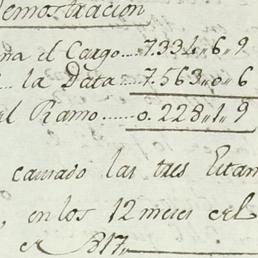 emostracion
na el Cargo....7.334,,6,,9
la Data....7.563,,0,,6
el Ramo......0.228,,1,,9
causado las tres Estam
, en los 12 meses del
817,,